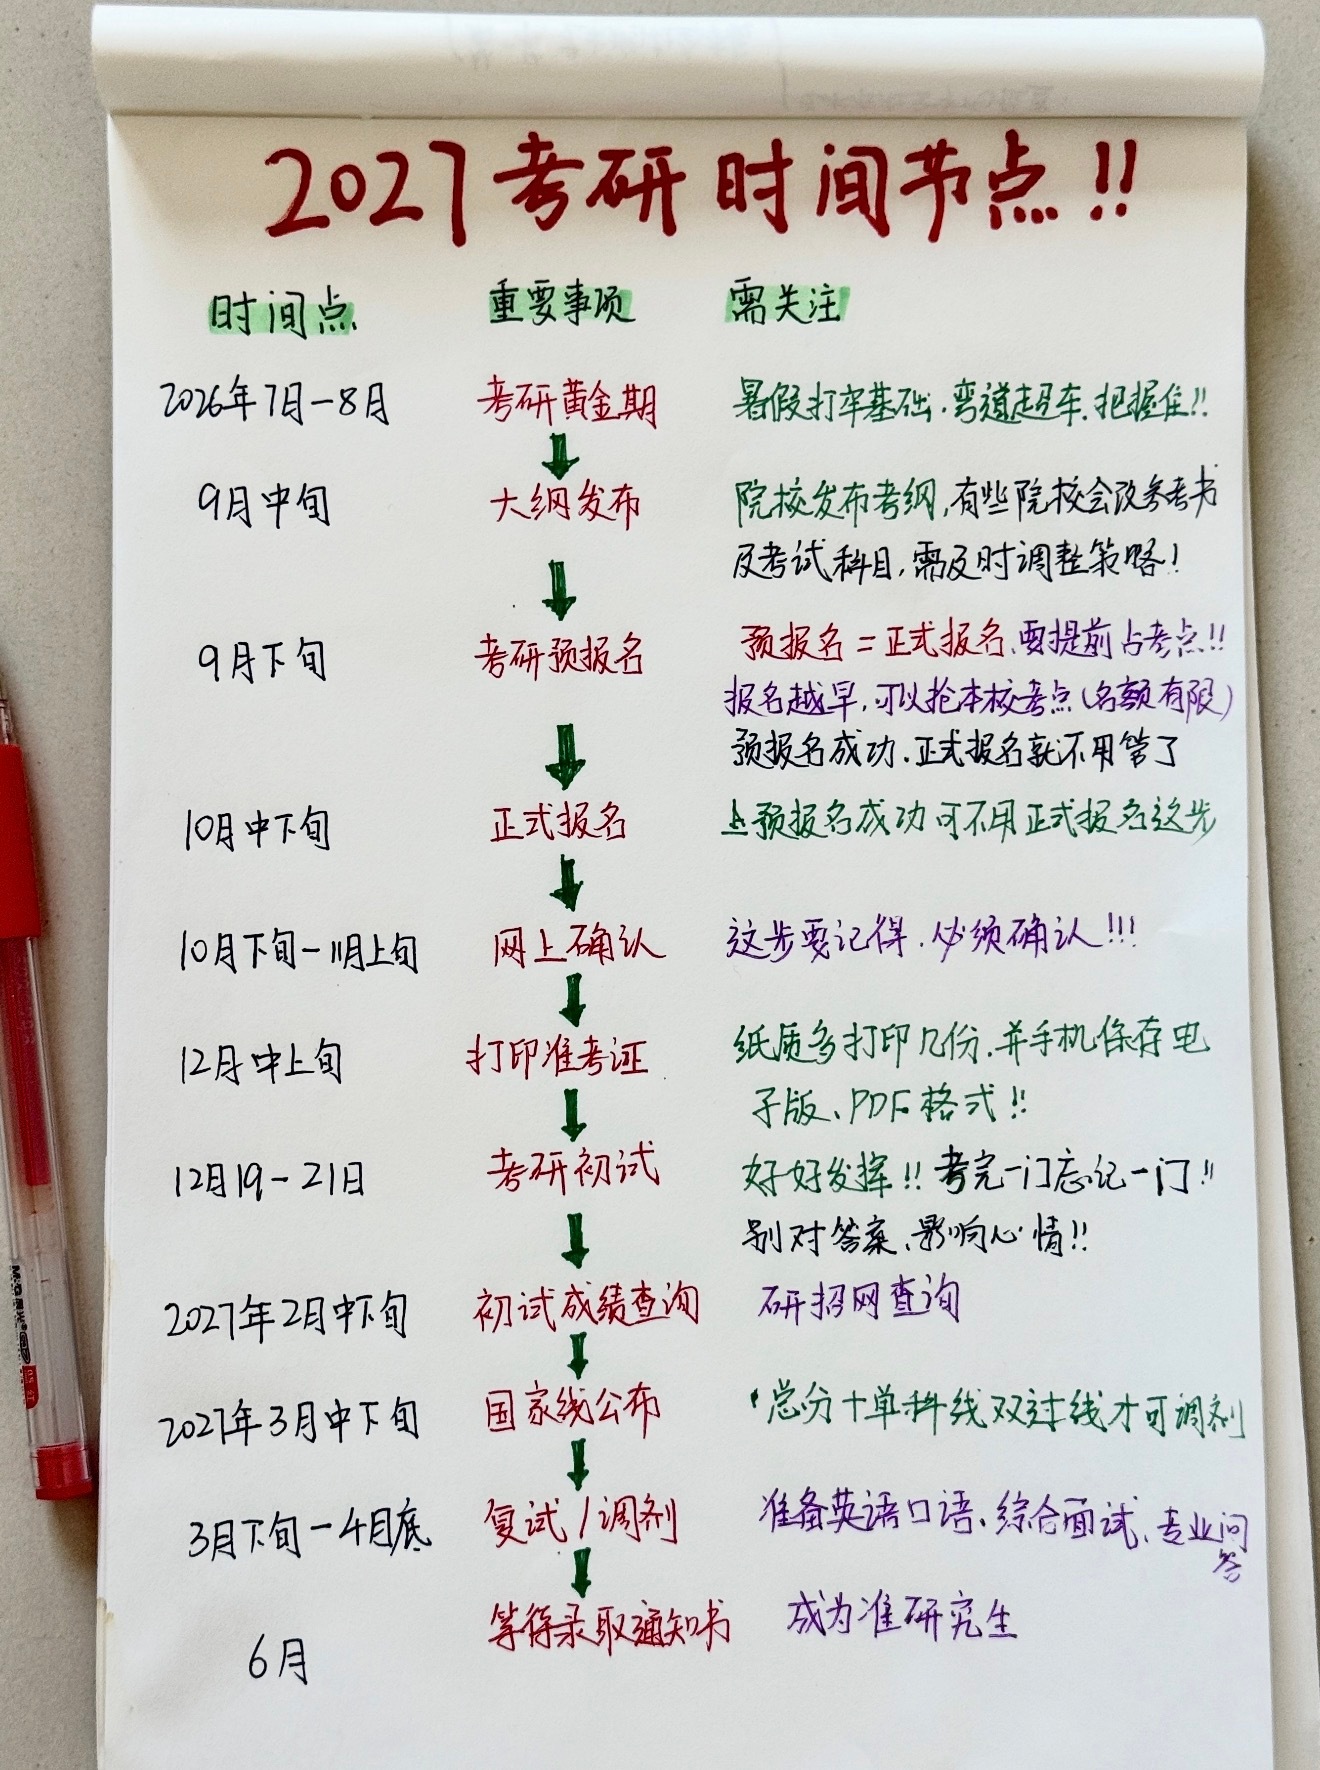 2027考研时间节点!!
时间点 重要事项 需关注
2026年7月-8月 考研黄金期 暑假打牢基础.弯道超车.把握住!!
9月中旬 大纲发布 院校发布考纲,有些院校会改参考书
及考试科目,需及时调整策略!
9月下旬 考研预报名 预报名=正式报名.要提前占考点!!
报名越早,可以抢本校考点(名额有限)
预报名成功.正式报名就不用管了
10月中下旬 正式报名 上预报名成功可不用正式报名这步
10月下旬-11月上旬 网上确认 这步要记得.必须确认!!!
12月中上旬 打印准考证 纸质多打印几份.并手机保存电
子版、PDF格式!!
12月19-21日 考研初试 好好发挥!!考完一门忘记一门!!
别对答案、影响心情!!
2027年2月中下旬 初试成绩查询 研招网查询
2027年3月中下旬 国家线公布 ·总分+单科线双过线才可调剂
3月下旬-4月底 复试/调剂 准备英语口语、综合面试、专业问
答
6月 等待录取通知书 成为准研究生